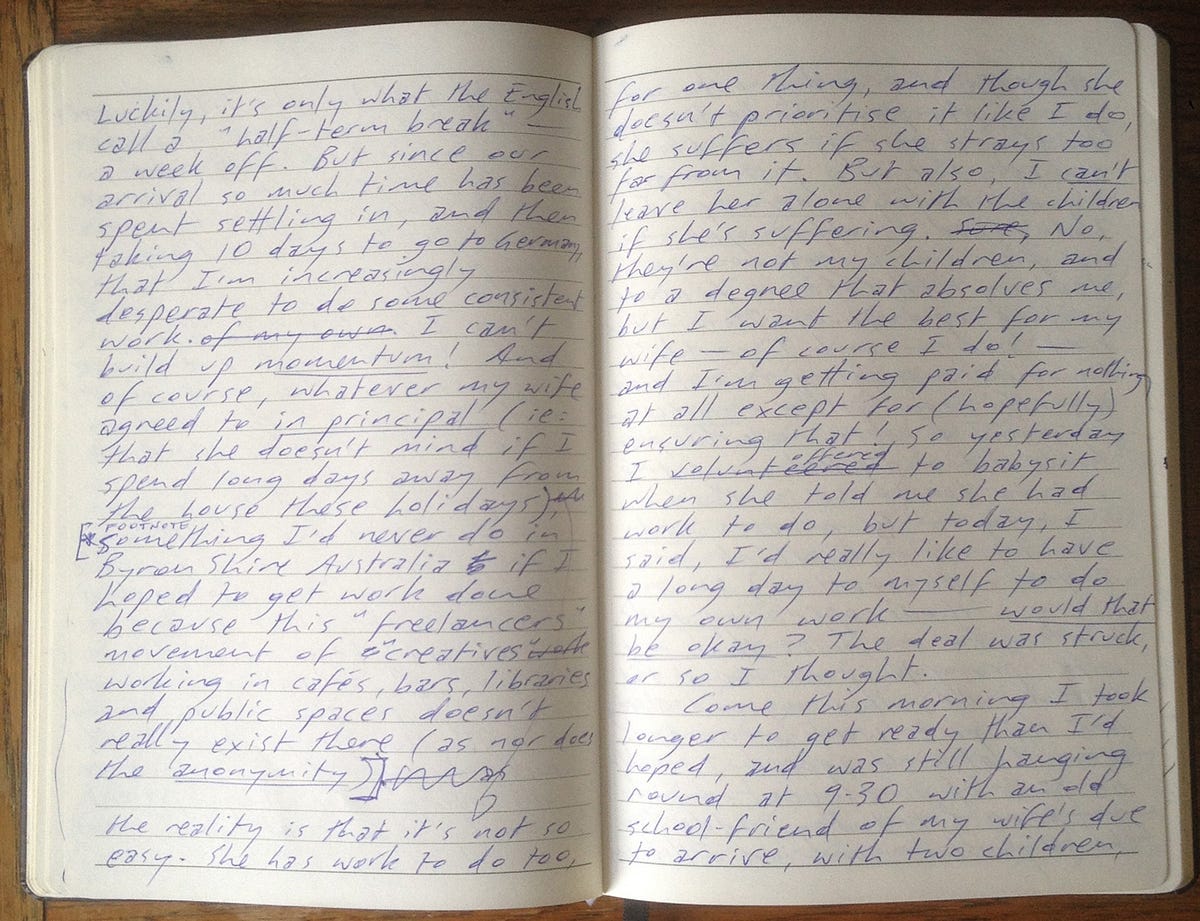 Luckily, it's only what the English
call a "half-term break" —
a week off. But since our
arrival so much time has been
spent settling in, and then
taking 10 days to go to Germany,
that I'm increasingly
desperate to do some consistent
work. of my own. I can't
build up momentum! And
of course, whatever my wife
agreed to in principal (ie:
that she doesn't mind if I
spend long days away from
the house these holidays),
[* FOOTNOTE
something I'd never do in
Byron Shire Australia if I
hoped to get work done
because this "freelancers"
movement of "creatives"
working in cafés, bars, libraries
and public spaces doesn't
really exist there (as nor does
the anonymity)]
the reality is that it's not so
easy. She has work to do too,
for one thing, and though she
doesn't prioritise it like I do,
she suffers if she strays too
far from it. But also, I can't
leave her alone with the children
if she's suffering. Sure, No,
they're not my children, and
to a degree that absolves me,
but I want the best for my
wife — of course I do! —
and I'm getting paid for nothing
at all except for (hopefully)
ensuring that! So yesterday
offered
I volunteered to babysit
when she told me she had
work to do, but today, I
said, I'd really like to have
a long day to myself to do
my own work — would that
be okay? The deal was struck,
or so I thought.
Come this morning I took
longer to get ready than I'd
hoped, and was still hanging
round at 9-30 with an old
school-friend of my wife's due
to arrive, with two children,